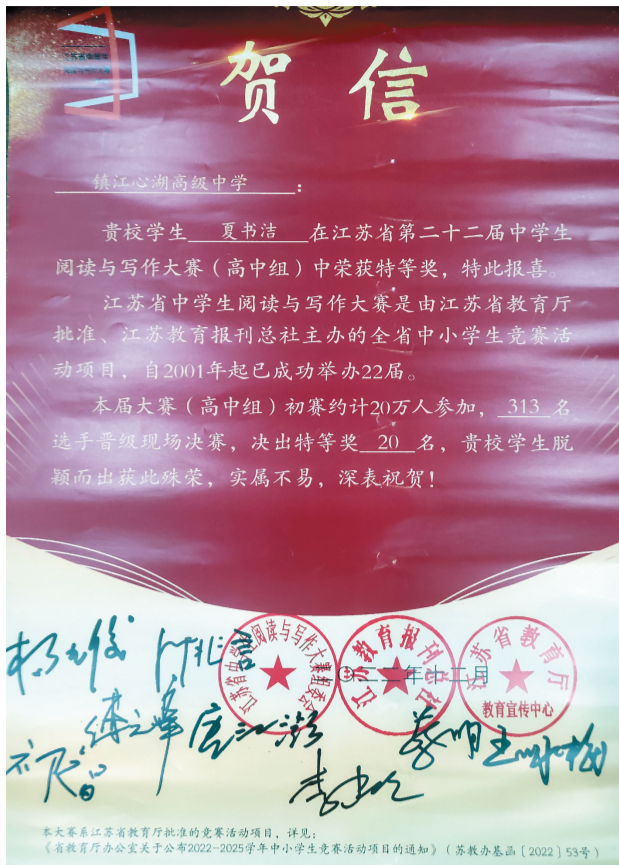 贺信
镇江心湖高级中学：
贵校学生 夏书洁 在江苏省第二十二届中学生
阅读与写作大赛（高中组）中荣获特等奖，特此报喜。
江苏省中学生阅读与写作大赛是由江苏省教育厅
批准、江苏教育报刊总社主办的全省中小学生竞赛活
动项目，自2001年起已成功举办22届。
本届大赛（高中组）初赛约计20万人参加，313名
选手晋级现场决赛，决出特等奖 20 名，贵校学生脱
颖而出获此殊荣，实属不易，深表祝贺！
江苏省中学生阅读与写作大赛组委会
江苏教育报刊总社
江苏省教育厅
教育宣传中心
二〇二二年十二月
本大赛系江苏省教育厅批准的竞赛活动项目，详见：
《省教育厅办公室关于公布2022-2025学年中小学生竞赛活动项目的通知》（苏教办基函〔2022〕53号）